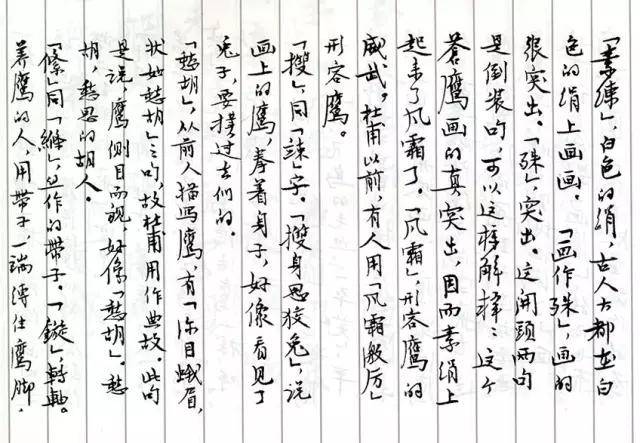 「素练」，白色的绢，古人大都在白
色的绢上画画。「画作殊」，画的
很突出。「殊」，突出。这开头两句
是倒装句，可以这样解释：这个
苍鹰画的真突出，因而素绢上
起来了风霜了。「风霜」，形容鹰的
威武，杜甫以前，有人用「风霜激厉」
形容鹰。
「㩳」，同「竦」字。「㩳身思狡兔」，说
画上的鹰，拳着身子，好像看见了
兔子，要扑过去似的。
「愁胡」，从前人描写鹰，有「深目蛾眉，
状如愁胡」之句，故杜甫用作典故。此句
是说，鹰侧目而视，好像「愁胡」。愁
胡，愁思的胡人。
「絛」，同「縧」，丝作的带子。「鏇」，转轴。
养鹰的人，用带子一端缚住鹰脚，